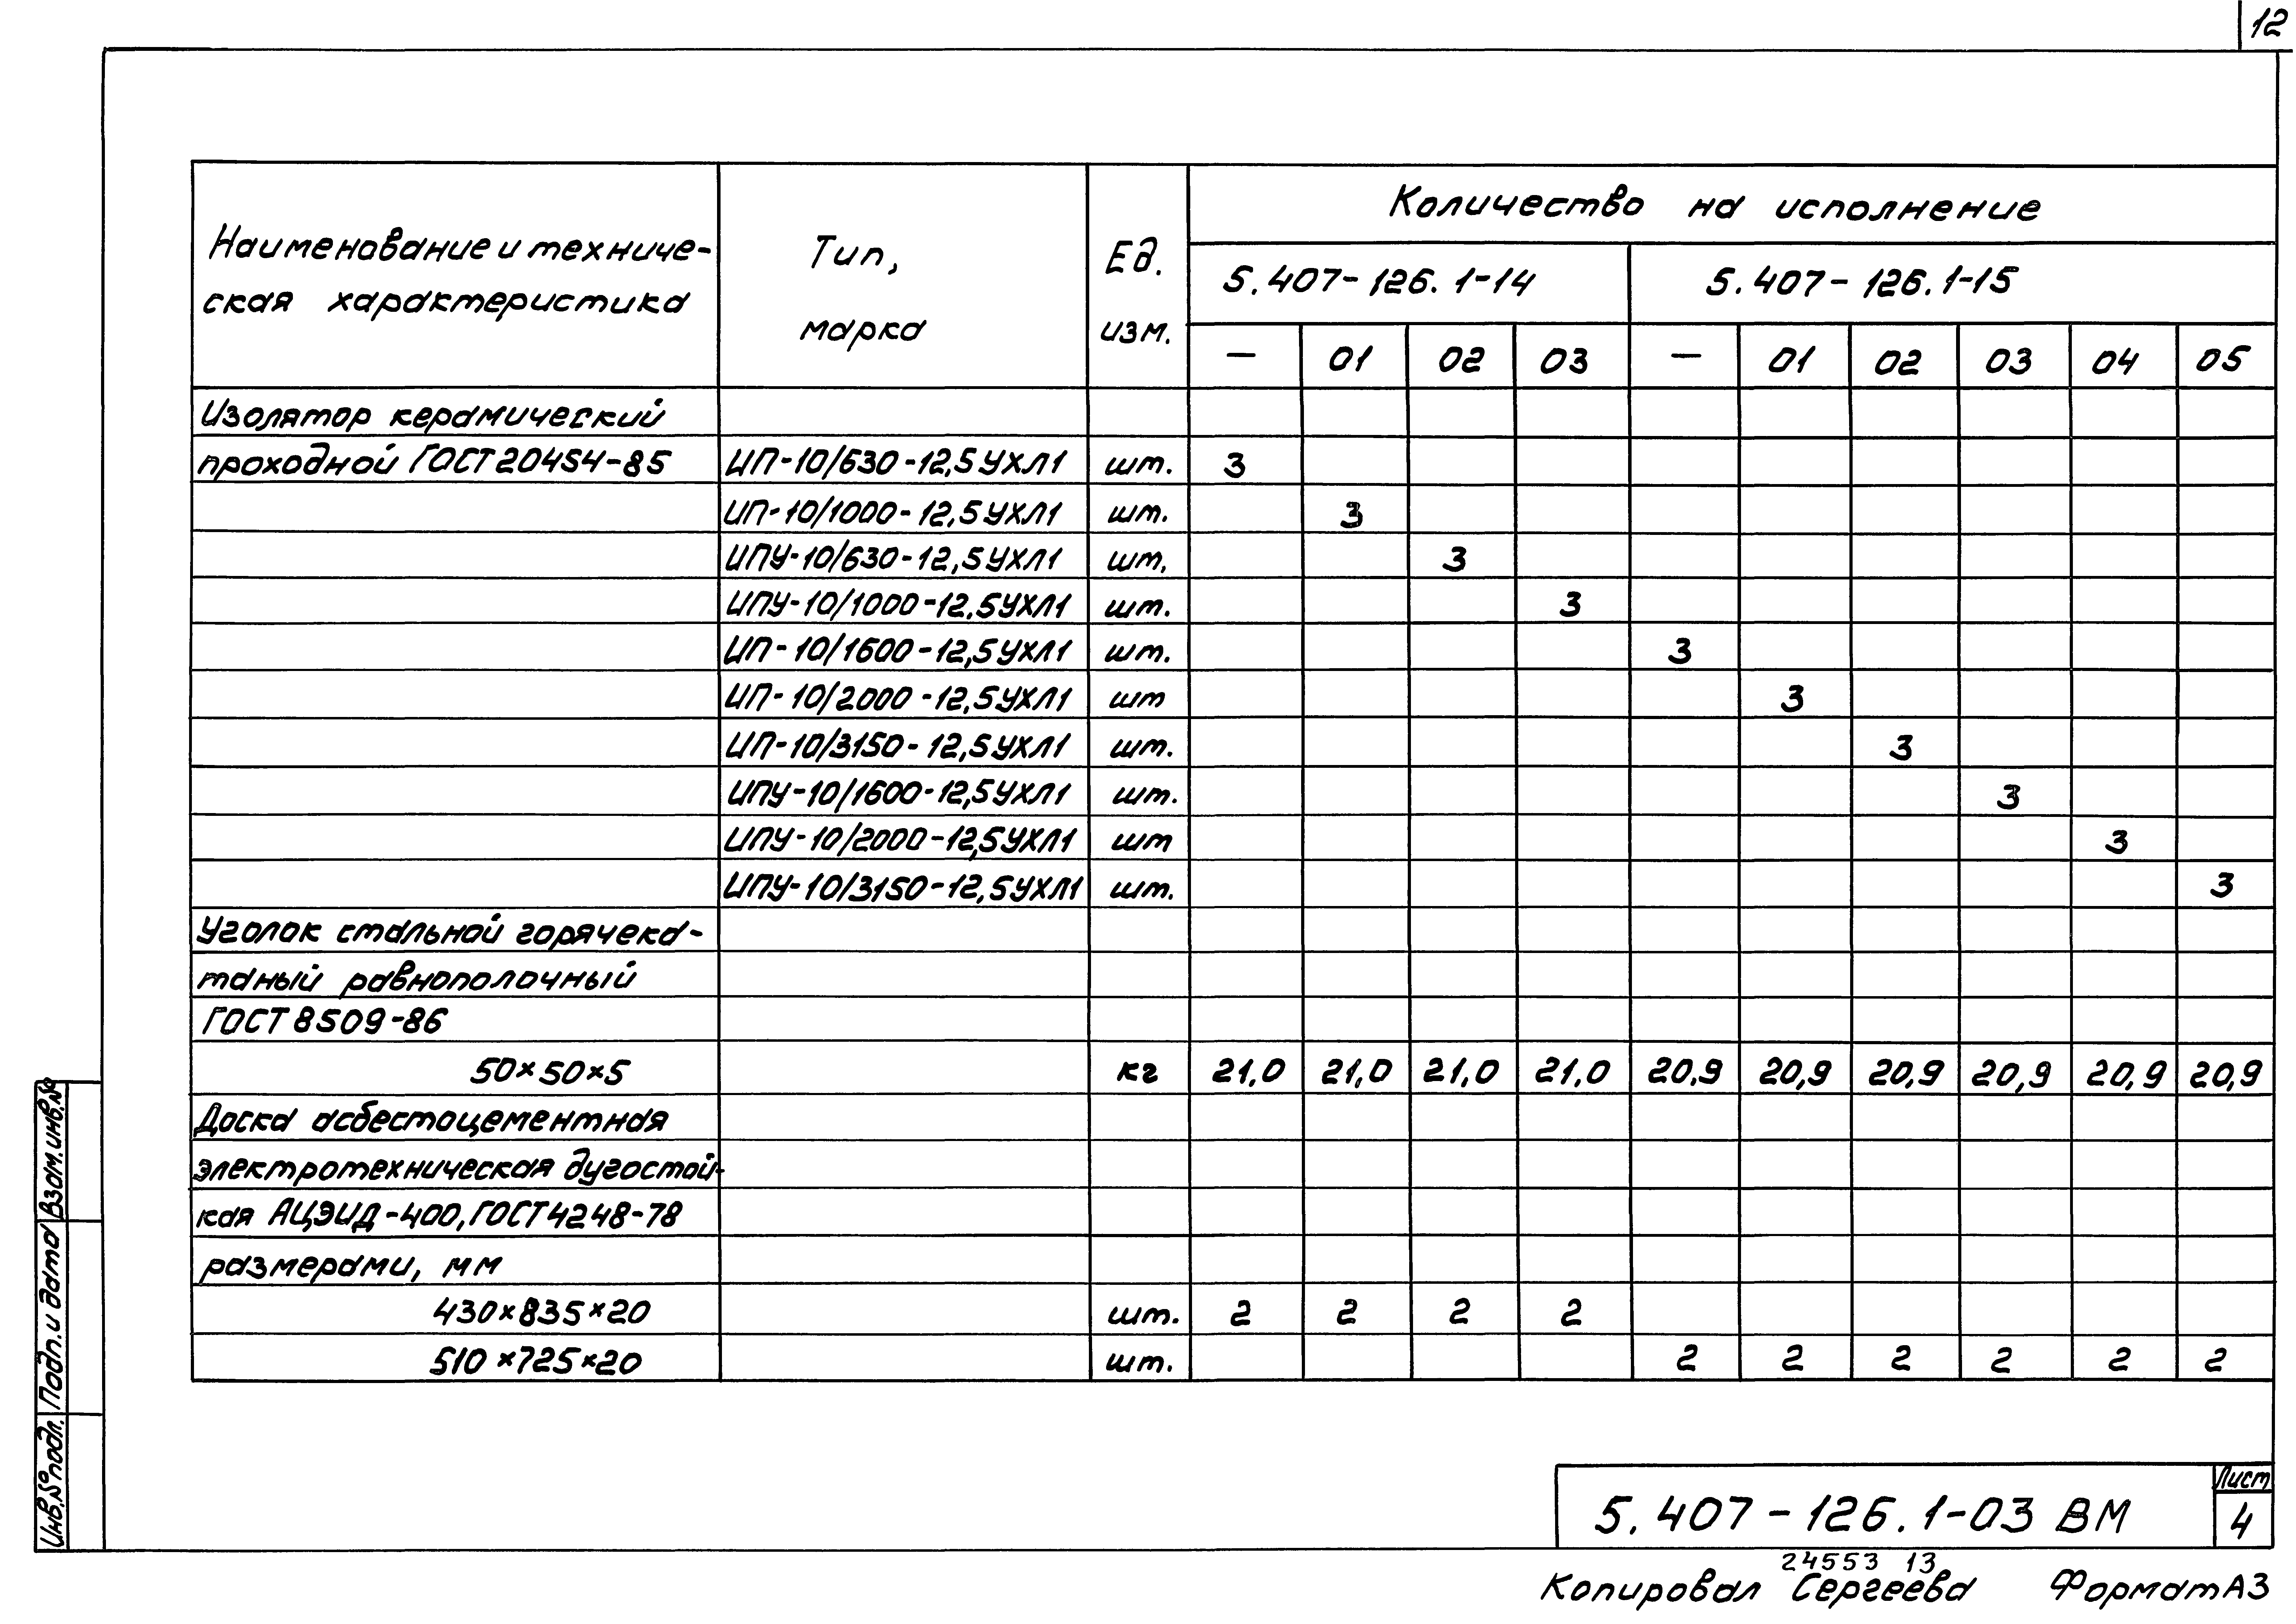 12
Наименование и техниче- Тип, Ед. Количество на исполнение
ская характеристика марка изм. 5.407-126.1-14 5.407-126.1-15
— 01 02 03 — 01 02 03 04 05
Изолятор керамический
проходной ГОСТ 20454-85 ИП-10/630-12,5УХЛ1 шт. 3
ИП-10/1000-12,5УХЛ1 шт. 3
ИПУ-10/630-12,5УХЛ1 шт. 3
ИПУ-10/1000-12,5УХЛ1 шт. 3
ИП-10/1600-12,5УХЛ1 шт. 3
ИП-10/2000-12,5УХЛ1 шт 3
ИП-10/3150-12,5УХЛ1 шт. 3
ИПУ-10/1600-12,5УХЛ1 шт. 3
ИПУ-10/2000-12,5УХЛ1 шт 3
ИПУ-10/3150-12,5УХЛ1 шт. 3
Уголок стальной горячека-
таный равнополочный
ГОСТ 8509-86
50×50×5 кг 21,0 21,0 21,0 21,0 20,9 20,9 20,9 20,9 20,9 20,9
Доска асбестоцементная
электротехническая дугостой-
кая АЦЭИД-400, ГОСТ 4248-78
размерами, мм
430×835×20 шт. 2 2 2 2
510×725×20 шт. 2 2 2 2 2 2
Взам.инв.№
Подп. и дата
Инв.№ подл.
5.407-126.1-03 ВМ
Лист
4
24553 13
Копировал Сергеева Формат А3